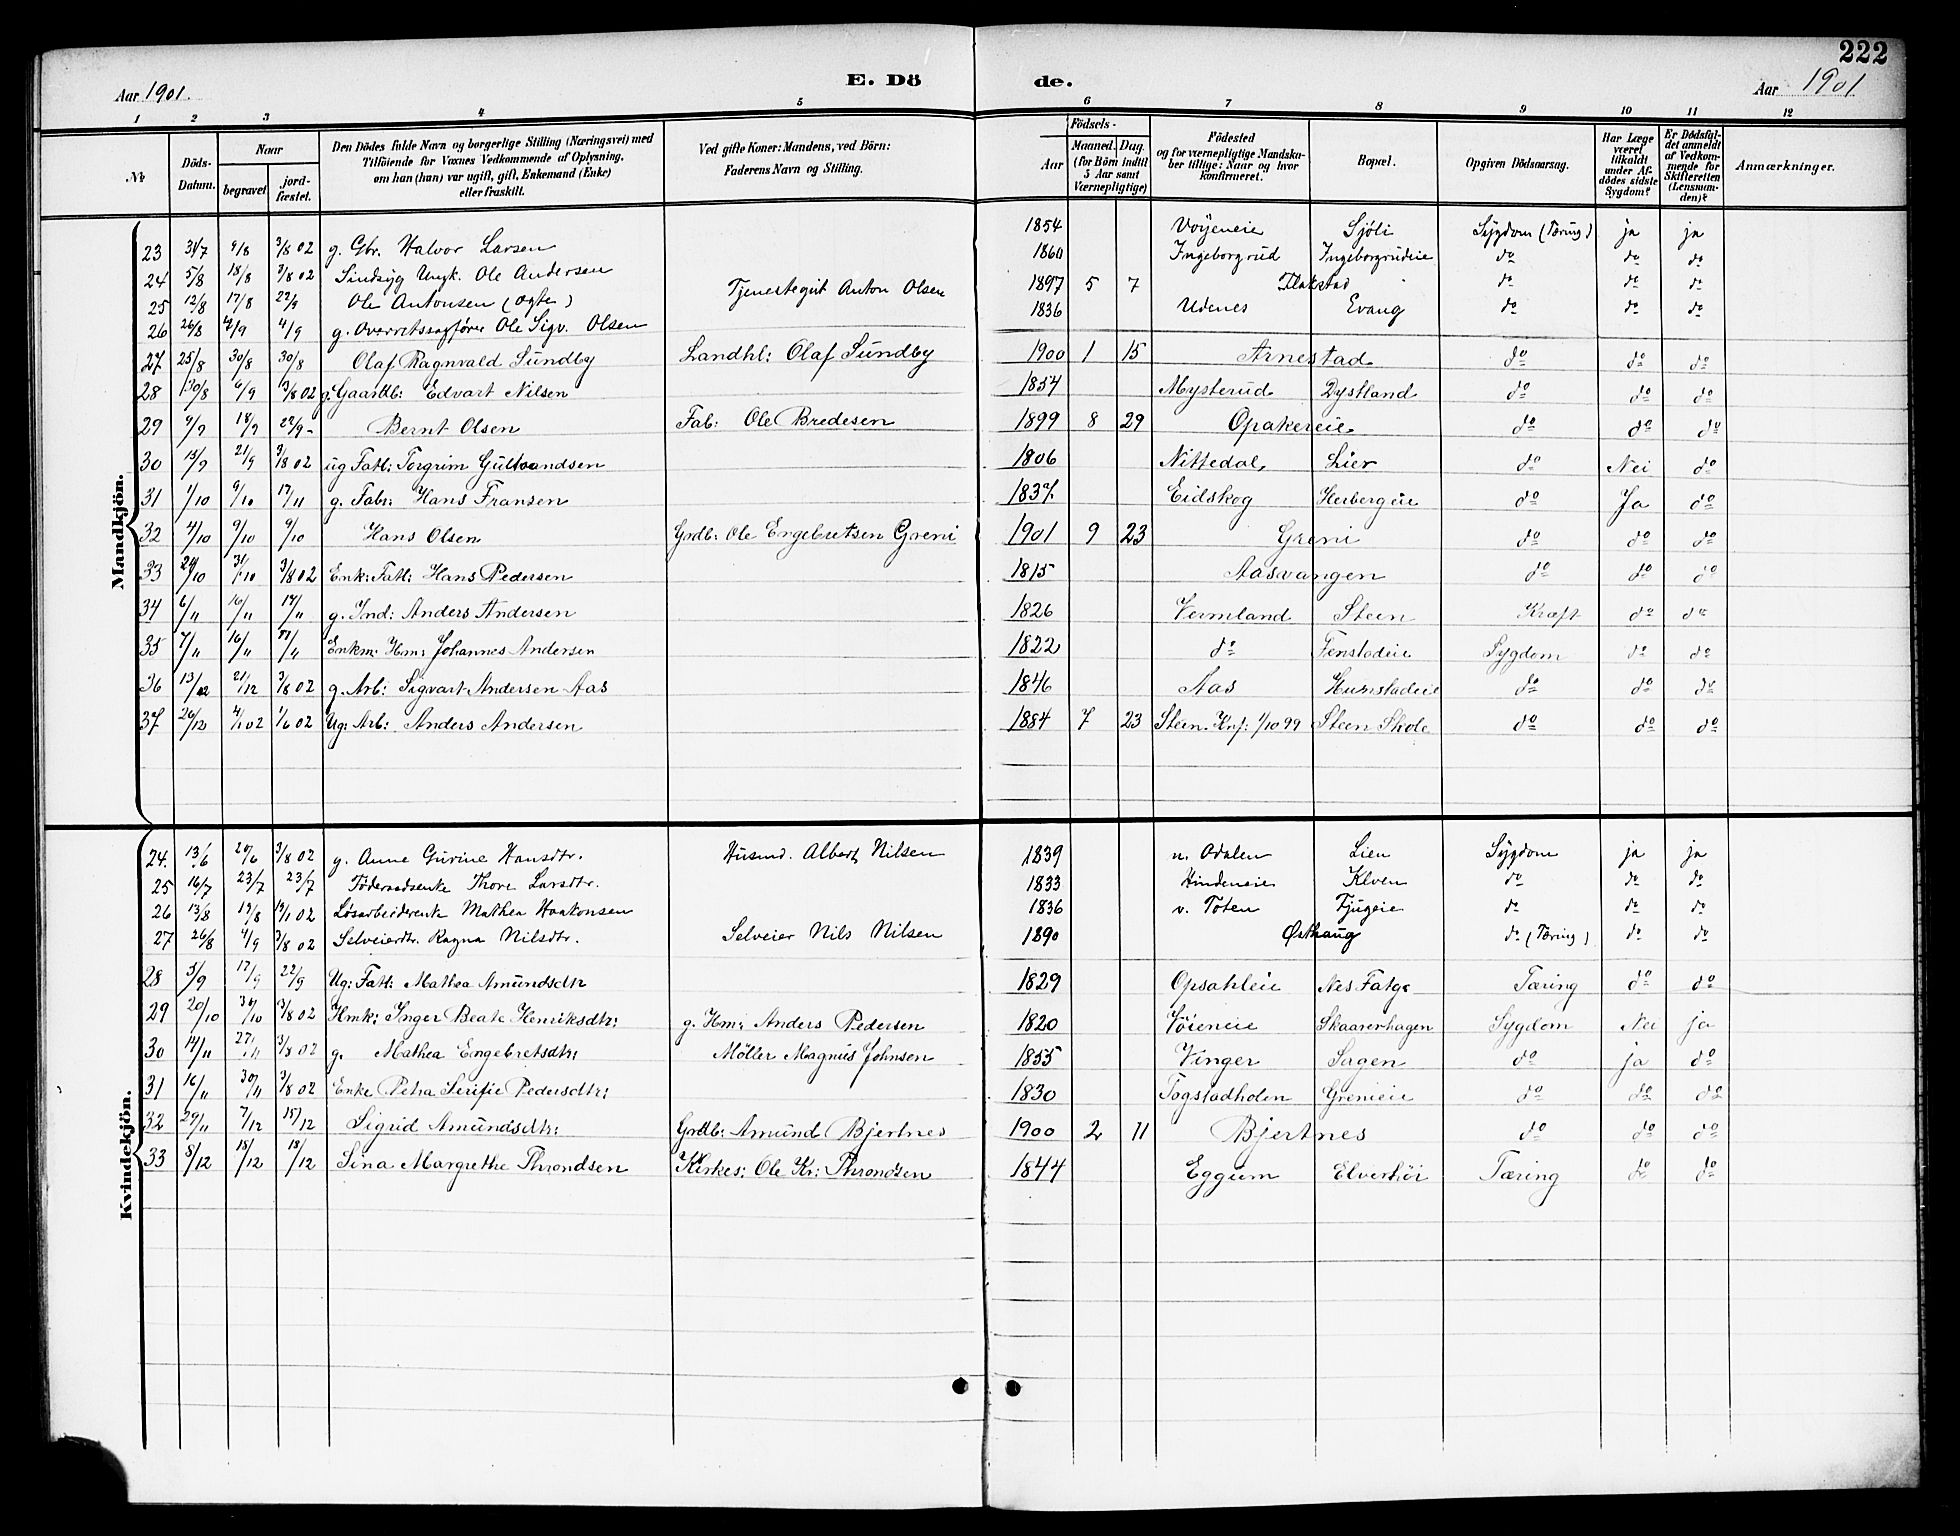 222
Aar 1901. E. Dö de. Aar 1901
1 2 3 4 5 6 7 8 9 10 11 12
№ Döds-Datum. Naar begravet jord-fæstet. Den Dödes fulde Navn og borgerlige Stilling (Næringsvei) med Tilföiende for Voxnes Vedkommende af Oplysning, om han (hun) var ugift, gift, Enkemand (Enke) eller fraskilt. Ved gifte Koner: Mandens, ved Börn: Faderens Navn og Stilling. Födsels- Aar Maaned. Dag. (for Börn indtil 5 Aar samt Værnepligtige) Födested og for værnepligtige Mandskaber tillige: Naar og hvor konfirmeret. Bopæl. Opgiven Dödsaarsag. Har Læge været tilkaldt under Afdödes sidste Sygdom? Er Dödsfaldet anmeldt af Vedkommende for Skifteretten (Lensmanden)? Anmærkninger.
Mandkjön.
23 31/7 9/8 3/8 02 g. Gbr. Halvor Larsen 1854 Vøyeneie Sjøli Sygdom (Tæring) ja ja
24 5/8 18/8 3/8 02 Sindsyg Ungk. Ole Andersen 1860 Ingeborgrud Ingeborgrudeie do do do
25 12/8 17/8 22/9 Ole Antonsen (Ogte) Tjenestegut Anton Olsen 1897 5 7 Flakstad do do do
26 26/8 4/9 4/9 g. Overretssagfører Ole Sigv. Olsen 1836 Udenes Evang do do do
27 25/8 30/8 30/8 Olaf Ragnvald Sundby Landhl: Olaf Sundby 1900 1 15 Arnestad do do do
28 30/8 6/9 3/8 02 g. Gaardb: Edvart Nilsen 1854 Mysterud Dystland do do do
29 9/9 18/9 22/9 - Bernt Olsen Fab: Ole Bredesen 1899 8 29 Opakereie do do do
30 13/9 21/9 3/8 02 ug Fatl: Torgrim Gulbrandsen 1806 Nittedal Lier do Nei do
31 1/10 9/10 17/11 g. Fabr: Hans Fransen 1837 Eidskog Herbergeie do Ja do
32 4/10 9/10 9/10 Hans Olsen Grdb: Ole Engebretsen Greni 1901 9 23 Greni do do do
33 24/10 31/10 3/8 02 Enk: Fatl: Hans Pedersen 1815 Aasvangen do do do
34 6/11 16/11 17/11 g. Ind: Anders Andersen 1826 Vermland Steen Kræft do do
35 7/11 16/11 17/11 Enkm: Hm: Johannes Andersen 1822 do Fenstadeie Sygdom do do
36 13/12 21/12 3/8 02 g. Arb: Sigvart Andersen Aas 1846 Aas Humstadeie do do do
37 26/12 4/1 02 1/6 02 Ug: Arb: Anders Andersen 1884 7 23 Steen. Knf: 1/10 99 Steen Skole do do do
Kvindekjön.
24. 13/6 20/6 3/8 02 g. Anne Gurine Hansdtr. Husmd. Albert Nilsen 1839 n. Odalen Lien Sygdom ja ja
25 16/7 23/7 23/7 Föderaadsenke Thore Larsdtr. 1833 Hindeneie Kloen do do do
26 13/8 19/8 19/1 02 Løsarbeiderenk Mathea Haakonsen 1836 v. Toten Fjugeie do do do
27 26/8 4/9 3/8 02 Selveierdtr. Ragna Nilsdtr. Selveier Nils Nilsen 1890 Østhaug do (Tæring) do do
28 5/9 17/9 22/9 Ug: Fatl: Mathea Amundsdtr 1829 Opsahleie Nes Fatg. Tæring do do
29 20/10 30/10 3/8 02 Hmk: Inger Beate Henriksdtr: g. Hm: Anders Pedersen 1820 Vøieneie Skaarerhagen Sygdom Nei ja
30 14/11 27/11 3/8 02 g. Mathea Engebretsdtr: Møller Magnus Johnsen 1855 Vinger Sagen do ja do
31 16/11 30/11 3/8 02 Enke Petra Serifie Pedersdtr: 1830 Togstadholen Grenieie do do do
32 29/11 7/12 15/12 Sigrid Amundsdtr: Grdb: Amund Bjertnes 1900 2 11 Bjertnes do do do
33 8/12 18/12 18/12 Sina Margrethe Throndsen Kirkes: Ole Kr: Throndsen 1844 Eggum Elverhöi Tæring do do